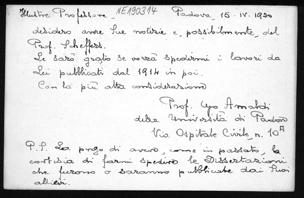 Illustre Professore, AE190314 Padova, 15-IV-1920
desidero avere Sue notizie e, possibilmente, del
Prof. Scheffers.
Le sarò grato se vorrà spedirmi i lavori da
Lei pubblicati dal 1914 in poi.
Con la più alta considerazione
Prof. Ugo Amaldi
della Università di Padova
Via Ospitale Civile, n. 10A
P.S. La prego di avere, come in passato, la
cortesia di farmi spedire le Dissertazioni
che furono o saranno pubblicate dai Suoi
allievi.